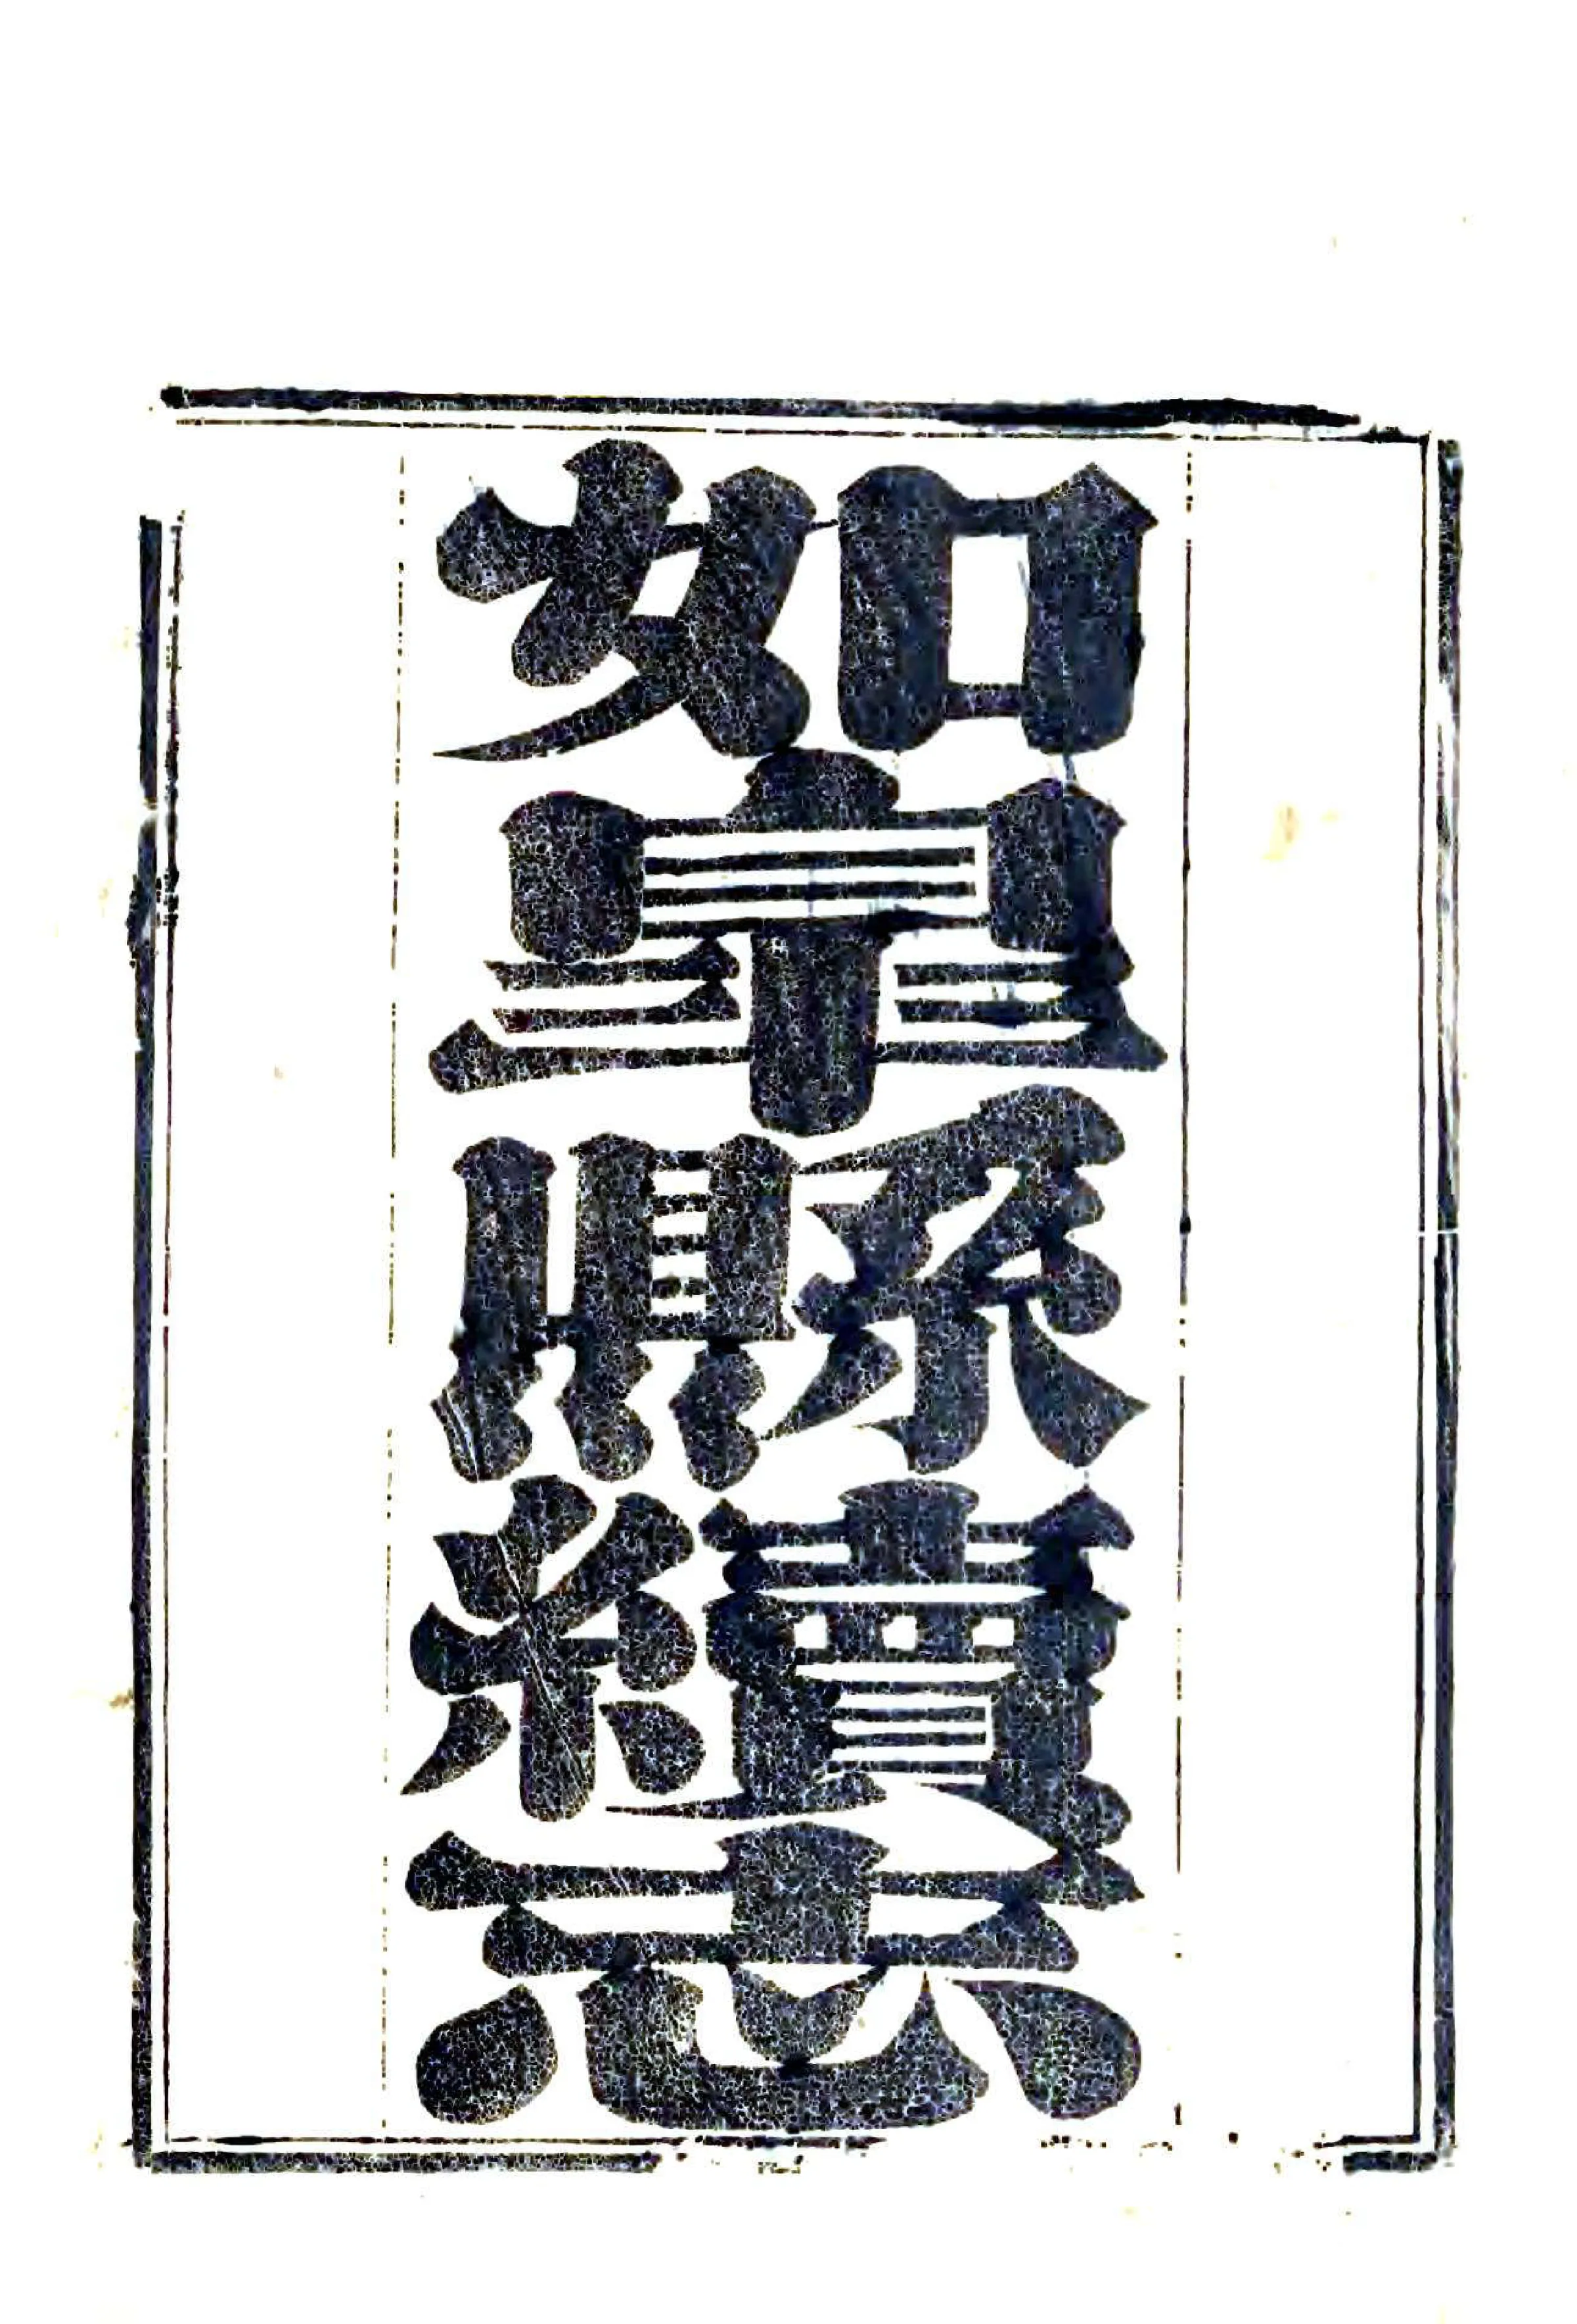 如皐縣續志